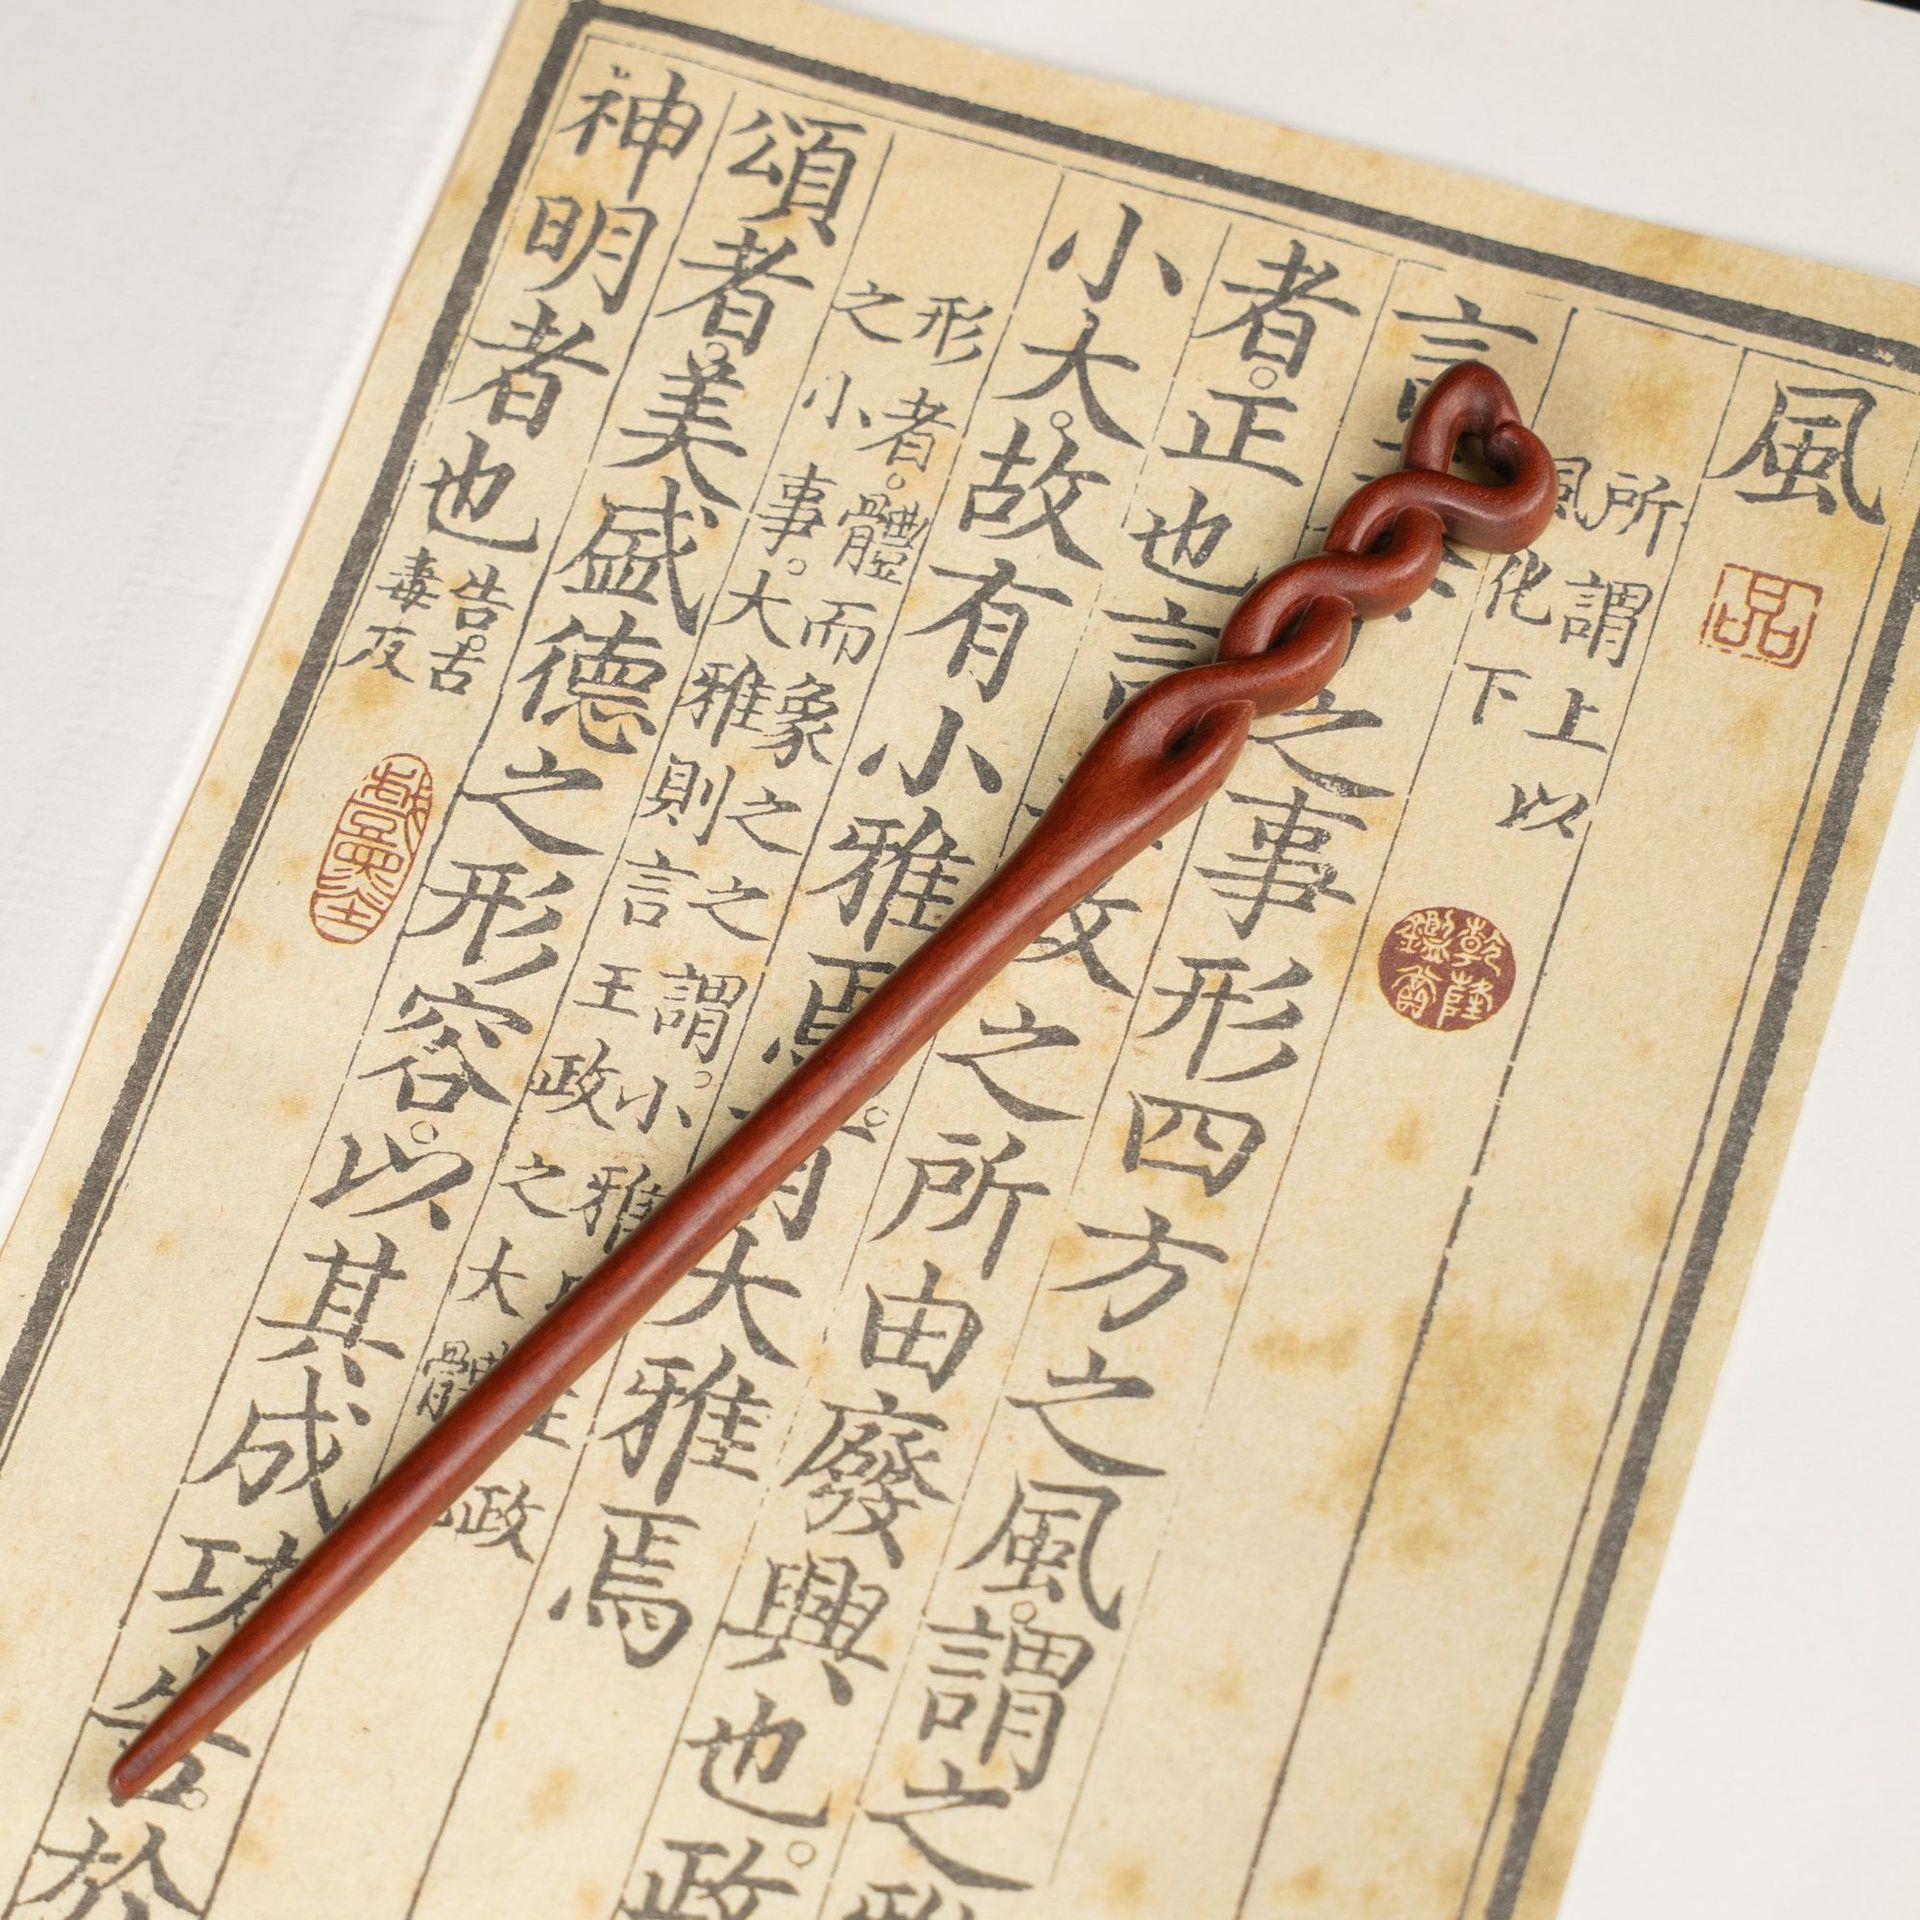 風
品
所謂上以
風化下
乾隆鑑賞
言之事形四方之風。謂之雅
者。正也言政之所由廢興也。政
小大。故有小雅焉。有大雅焉
形者。體而象之之謂。小雅政
之小事。大雅則言王政之大體
頌者。美盛德之形容。以其成功告。於
神明者也
告。古
毒反